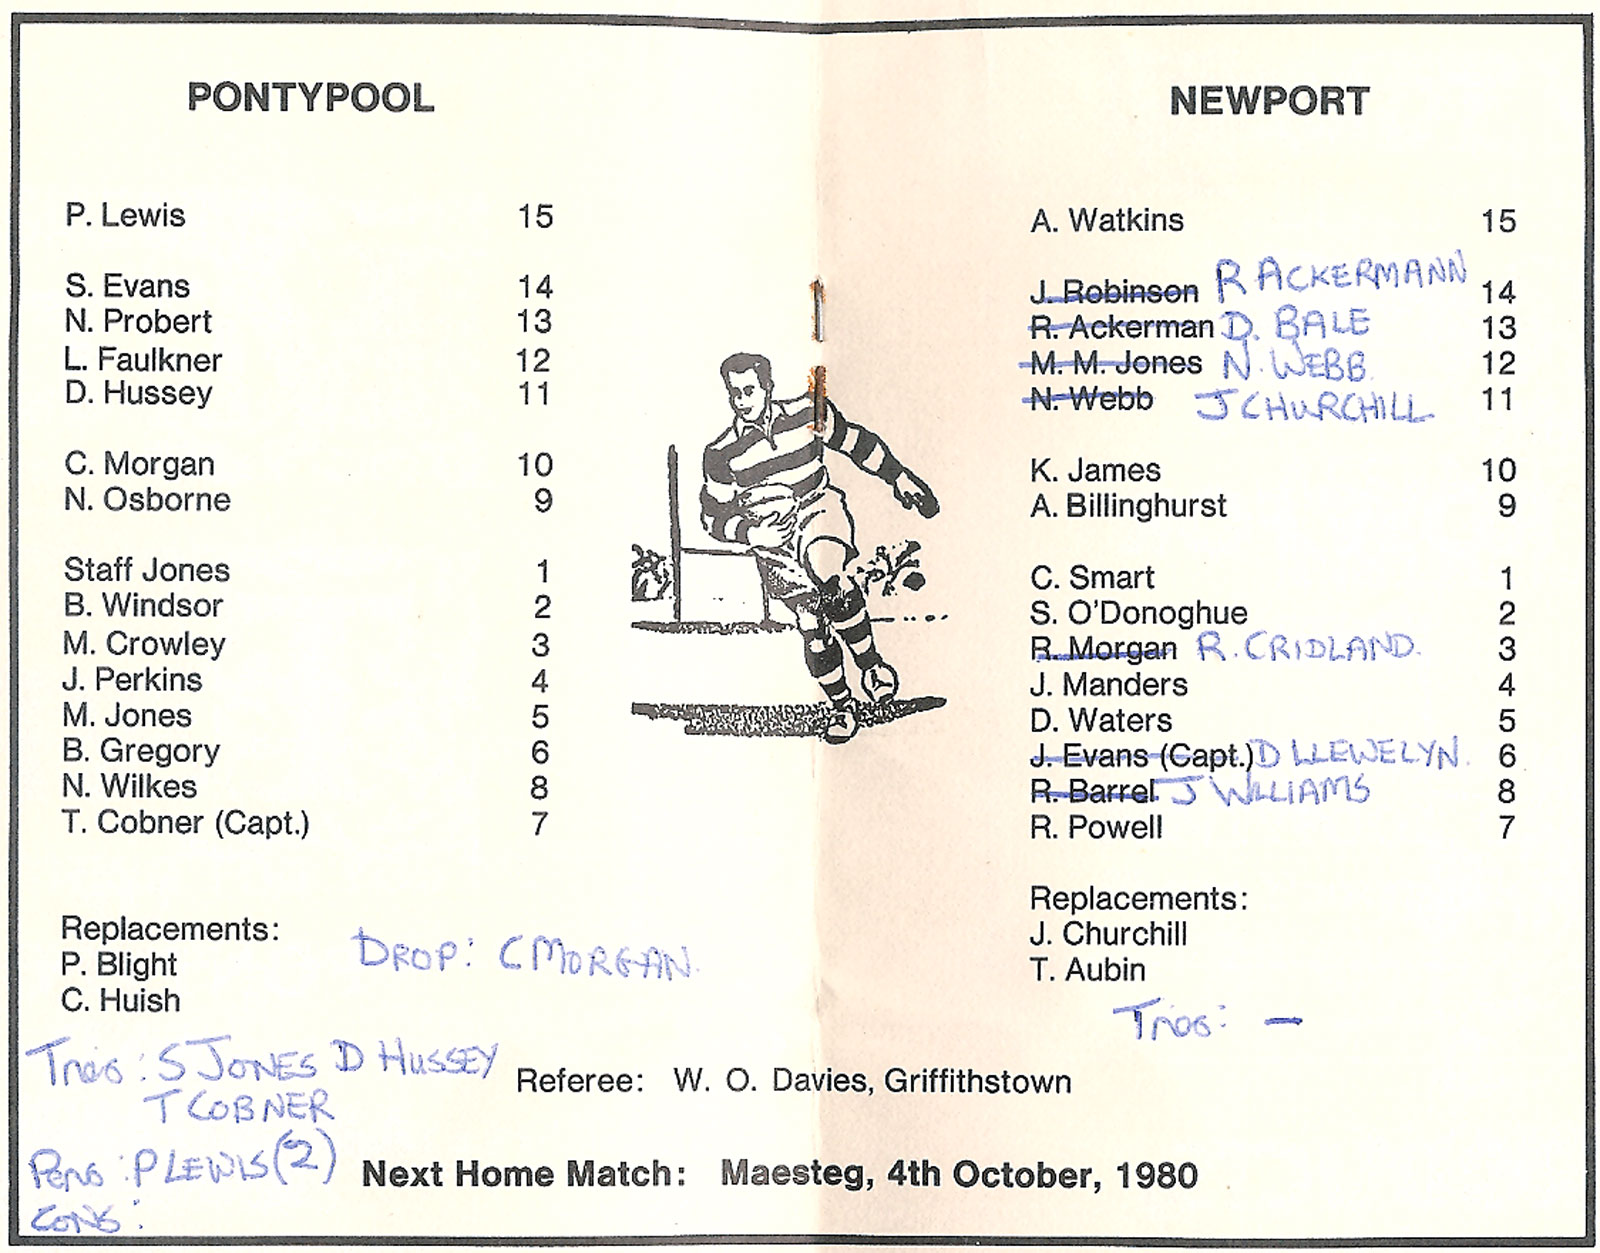 PONTYPOOL
P. Lewis 15
S. Evans 14
N. Probert 13
L. Faulkner 12
D. Hussey 11
C. Morgan 10
N. Osborne 9
Staff Jones 1
B. Windsor 2
M. Crowley 3
J. Perkins 4
M. Jones 5
B. Gregory 6
N. Wilkes 8
T. Cobner (Capt.) 7
Replacements:
P. Blight
C. Huish
DROP: C MORGAN
Tries: S JONES D HUSSEY
T COBNER
Pens: P LEWIS (2)
CONS:
NEWPORT
A. Watkins 15
J. Robinson R ACKERMANN 14
R. Ackerman D. BALE 13
M. M. Jones N. WEBB 12
N. Webb J CHURCHILL 11
K. James 10
A. Billinghurst 9
C. Smart 1
S. O'Donoghue 2
R. Morgan R. CRIDLAND. 3
J. Manders 4
D. Waters 5
J. Evans (Capt.) D LLEWELYN. 6
R. Barrel J WILLIAMS 8
R. Powell 7
Replacements:
J. Churchill
T. Aubin
Tries: —
Referee: W. O. Davies, Griffithstown
Next Home Match: Maesteg, 4th October, 1980